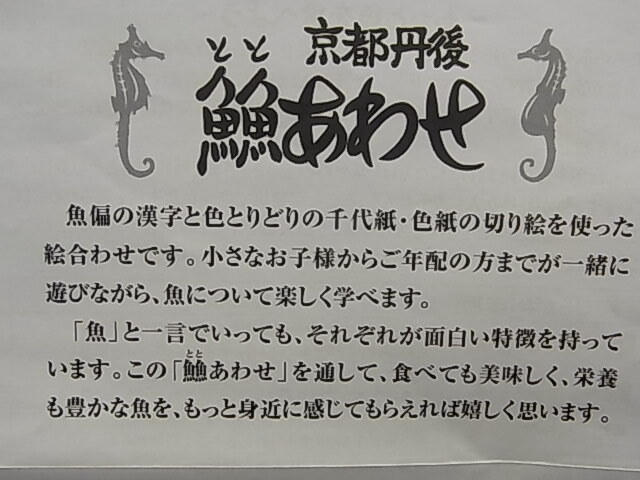 京都丹後
とと
䲆あわせ
魚偏の漢字と色とりどりの千代紙・色紙の切り絵を使った
絵合わせです。小さなお子様からご年配の方までが一緒に
遊びながら、魚について楽しく学べます。
「魚」と一言でいっても、それぞれが面白い特徴を持って
とと
います。この「䲆あわせ」を通して、食べても美味しく、栄養
も豊かな魚を、もっと身近に感じてもらえれば嬉しく思います。